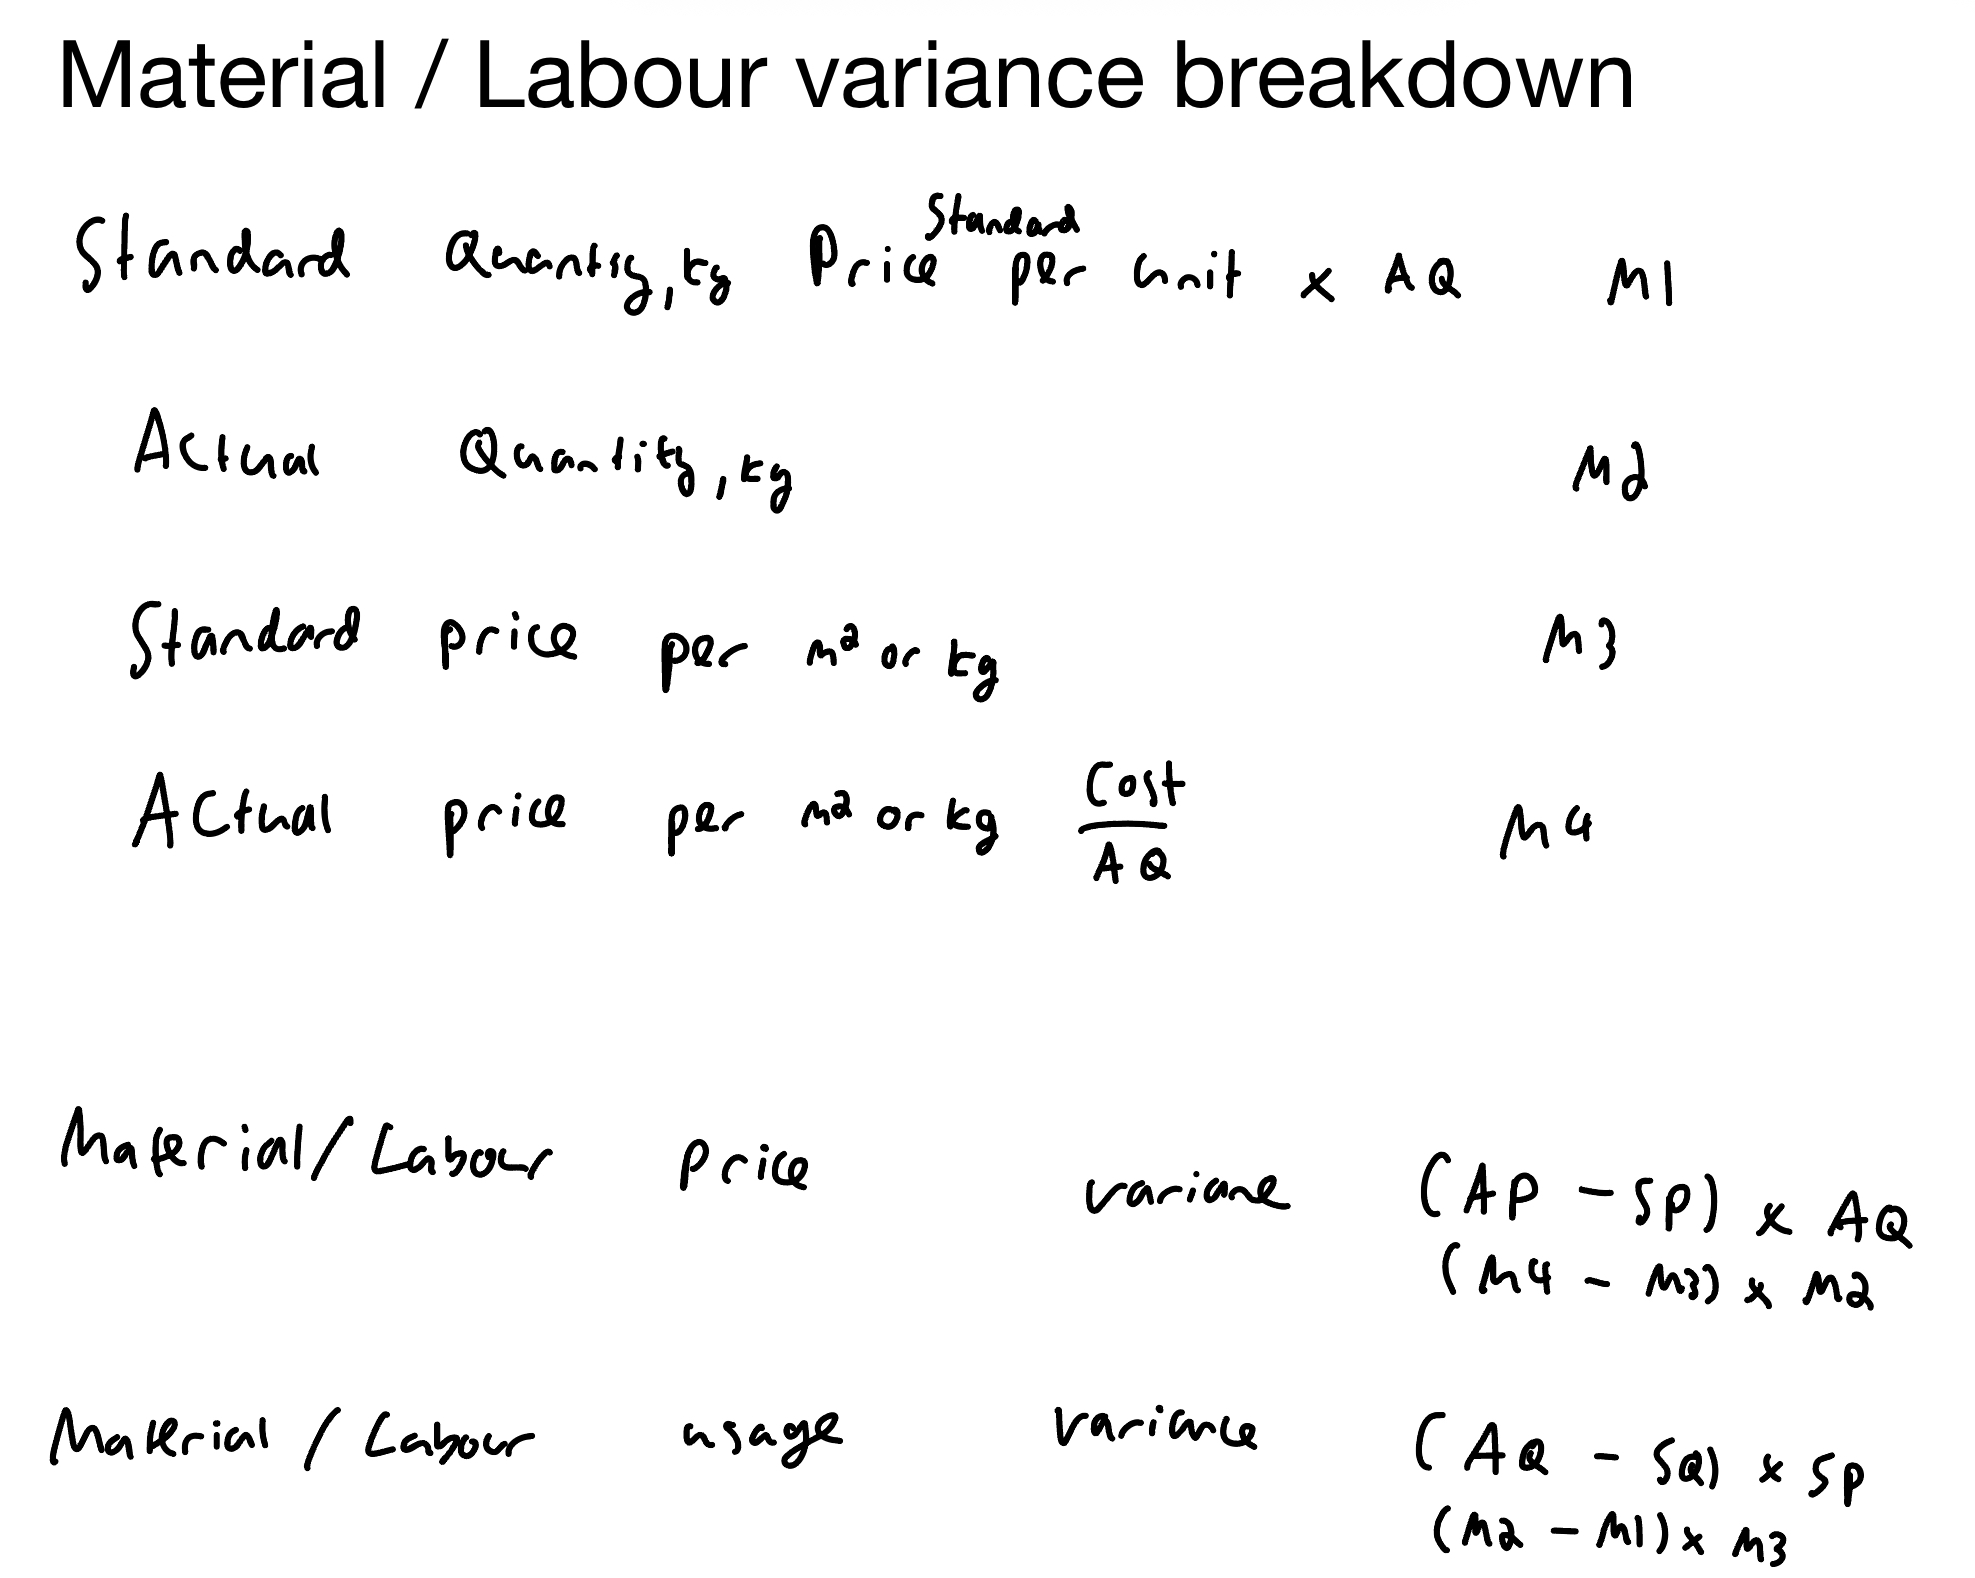 Material / Labour variance breakdown
Standard Quantity, kg Price Standard per unit x AQ M1
Actual Quantity, kg M2
Standard price per m² or kg M3
Actual price per m² or kg Cost / AQ M4
Material/Labour Price variance (AP - SP) x AQ
(M4 - M3) x M2
Material / Labour usage variance (AQ - SQ) x SP
(M2 - M1) x M3